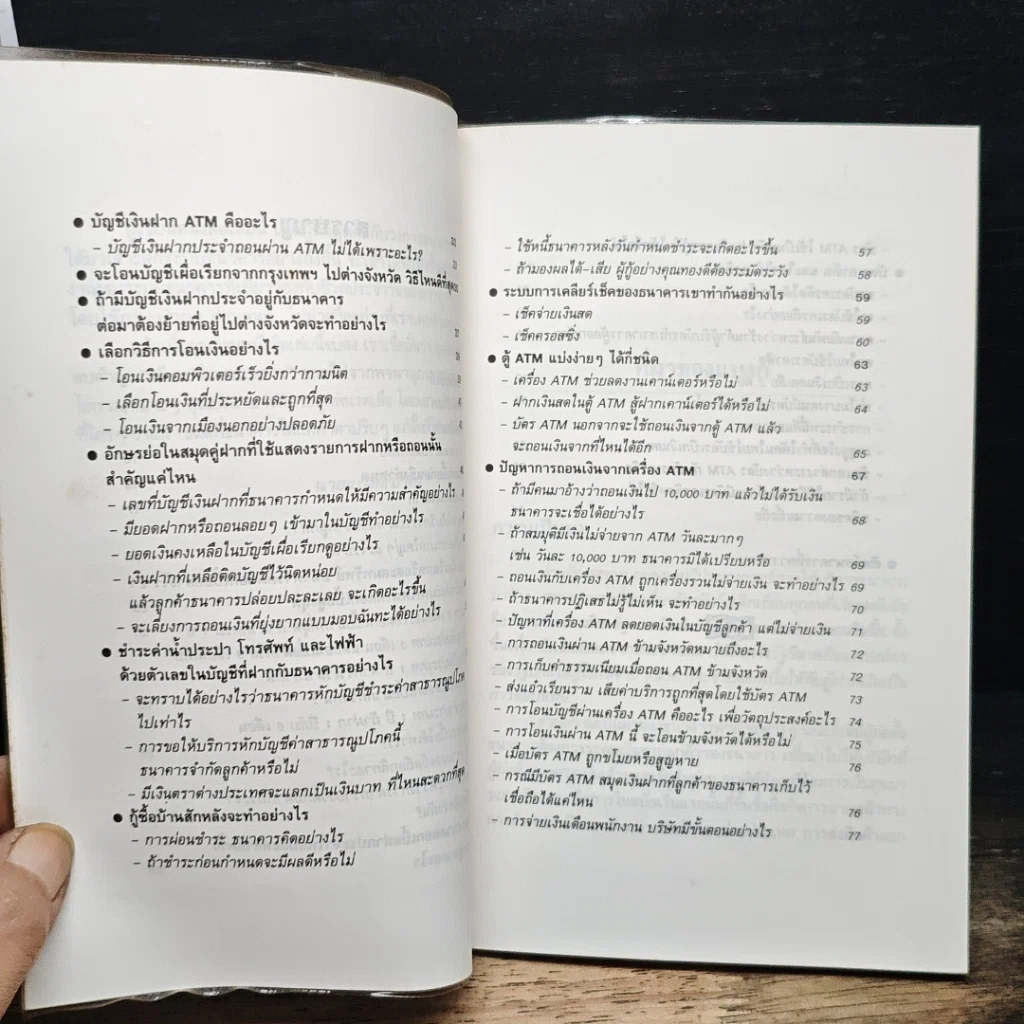 ● บัญชีเงินฝาก ATM คืออะไร
– บัญชีเงินฝากประจำถอนผ่าน ATM ไม่ได้เพราะอะไร?
● จะโอนบัญชีเผื่อเรียกจากกรุงเทพฯ ไปต่างจังหวัด วิธีไหนดีที่สุด
● ถ้ามีบัญชีเงินฝากประจำอยู่กับธนาคาร
ต่อมาต้องย้ายที่อยู่ไปต่างจังหวัดจะทำอย่างไร
● เลือกวิธีการโอนเงินอย่างไร
– โอนเงินคอมพิวเตอร์เร็วยิ่งกว่ากามนิต
– เลือกโอนเงินที่ประหยัดและถูกที่สุด
– โอนเงินจากเมืองนอกอย่างปลอดภัย
● อักษรย่อในสมุดคู่ฝากที่ใช้แสดงรายการฝากหรือถอนนั้น
สำคัญแค่ไหน
– เลขที่บัญชีเงินฝากที่ธนาคารกำหนดให้มีความสำคัญอย่างไร
– มียอดฝากหรือถอนลอยๆ เข้ามาในบัญชีทำอย่างไร
– ยอดเงินคงเหลือในบัญชีเผื่อเรียกดูอย่างไร
– เงินฝากที่เหลือติดบัญชีไว้นิดหน่อย
แล้วลูกค้าธนาคารปล่อยปละละเลย จะเกิดอะไรขึ้น
– จะเลี่ยงการถอนเงินที่ยุ่งยากแบบมอบฉันทะได้อย่างไร
● ชำระค่าน้ำประปา โทรศัพท์ และไฟฟ้า
ด้วยตัวเลขในบัญชีที่ฝากกับธนาคารอย่างไร
– จะทราบได้อย่างไรว่าธนาคารหักบัญชีชำระค่าสาธารณูปโภค
ไปเท่าไร
– การขอให้บริการหักบัญชีค่าสาธารณูปโภคนี้
ธนาคารจำกัดลูกค้าหรือไม่
– มีเงินตราต่างประเทศจะแลกเป็นเงินบาท ที่ไหนสะดวกที่สุด
● กู้ซื้อบ้านสักหลังจะทำอย่างไร
– การผ่อนชำระ ธนาคารคิดอย่างไร
– ถ้าชำระก่อนกำหนดจะมีผลดีหรือไม่
– ใช้หนี้ธนาคารหลังวันกำหนดชำระจะเกิดอะไรขึ้น 57
– ถ้ามองผลได้-เสีย ผู้กู้อย่างคุณทองดีต้องระมัดระวัง 58
● ระบบการเคลียร์เช็คของธนาคารเขาทำกันอย่างไร 59
– เช็คจ่ายเงินสด 59
– เช็คครอสซิ่ง 60
● ตู้ ATM แบ่งง่ายๆ ได้กี่ชนิด 63
– เครื่อง ATM ช่วยลดงานเคาน์เตอร์หรือไม่ 63
– ฝากเงินสดในตู้ ATM สู้ฝากเคาน์เตอร์ได้หรือไม่ 64
– บัตร ATM นอกจากจะใช้ถอนเงินจากตู้ ATM แล้ว
จะถอนเงินจากที่ไหนได้อีก 65
● ปัญหาการถอนเงินจากเครื่อง ATM 67
– ถ้ามีคนมาอ้างว่าถอนเงินไป 10,000 บาท แล้วไม่ได้รับเงิน
ธนาคารจะเชื่อได้อย่างไร 68
– ถ้าสมมุติมีเงินไม่จ่ายจาก ATM วันละมากๆ
เช่น วันละ 10,000 บาท ธนาคารมิได้เปรียบหรือ 69
– ถอนเงินกับเครื่อง ATM ถูกเครื่องรวนไม่จ่ายเงิน จะทำอย่างไร 69
– ถ้าธนาคารปฏิเสธไม่รู้ไม่เห็น จะทำอย่างไร 70
– ปัญหาที่เครื่อง ATM ลดยอดเงินในบัญชีลูกค้า แต่ไม่จ่ายเงิน 71
– การถอนเงิน ATM ข้ามจังหวัดหมายถึงอะไร 72
– การเก็บค่าธรรมเนียมเมื่อถอน ATM ข้ามจังหวัด 72
– ส่งแอ๋วเรียนราม เสียค่าบริการถูกที่สุดโดยใช้บัตร ATM 73
– การโอนบัญชีผ่านเครื่อง ATM คืออะไร เพื่อวัตถุประสงค์อะไร 74
– การโอนเงินผ่าน ATM นี้ จะโอนข้ามจังหวัดได้หรือไม่ 75
– เมื่อบัตร ATM ถูกขโมยหรือสูญหาย 76
– กรณีมีบัตร ATM สมุดเงินฝากที่ลูกค้าของธนาคารเก็บไว้
เชื่อถือได้แค่ไหน 76
– การจ่ายเงินเดือนพนักงาน บริษัทมีขั้นตอนอย่างไร 77